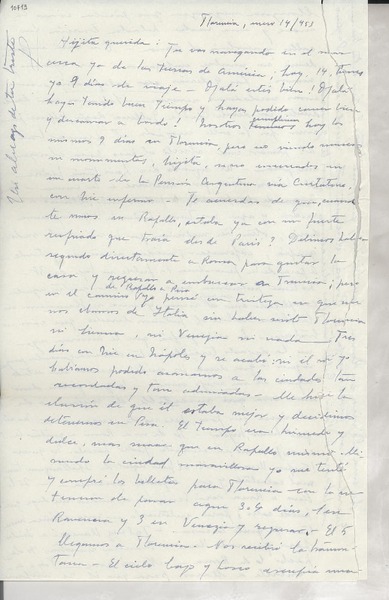 10773
Florencia, enero 14/953
Hijita querida: Tu vas navegando en el mar
cerca ya de las tierras de América, hoy 14, tienes
ya 9 días de viaje - Ojalá estés bien! Ojalá
hayan tenido buen tiempo y hayan podido comer bien
y descansar a bordo! Nosotros cumplimos hoy los
mismos 9 días en Florencia, pero no viendo museos
ni monumentos, hijita, sino encerrados en
un cuarto de la Pensión Argentina vía Curtatone,
con Nie enfermo - Te acuerdas de que, cuando
le vimos en Rapallo, estaba ya con un fuerte
resfriado que traía desde París? Debimos haber
seguido directamente a Roma para quitar la
casa y regresar a embarcar en Francia; pero
en el camino de Rapallo a Pisa ya pensé con tristeza en que nos
íbamos de Italia sin haber visto Florencia
ni Siena, ni Venezia ni nada - Tres
días en Nápoles y se acabó: ni él ni yo
habíamos podido asomarnos a las ciudades tan
recordadas y tan admiradas - Me hice la
ilusión de que él estaba mejor y decidimos
detenernos en Pisa. El tiempo era húmedo y
dulce, mas suave que en Rapallo mismo. Mi
rando la ciudad maravillosa yo me tenté
y compré los billetes para Florencia con la in
tención de pasar aquí 3 ó 4 días, 1 en
Ravenna y 3 en Venezia y regresar - El 5
llegamos a Florencia - Nos recibió la tramon
tana - El cielo bajo y hosco
Un abrazo de tu